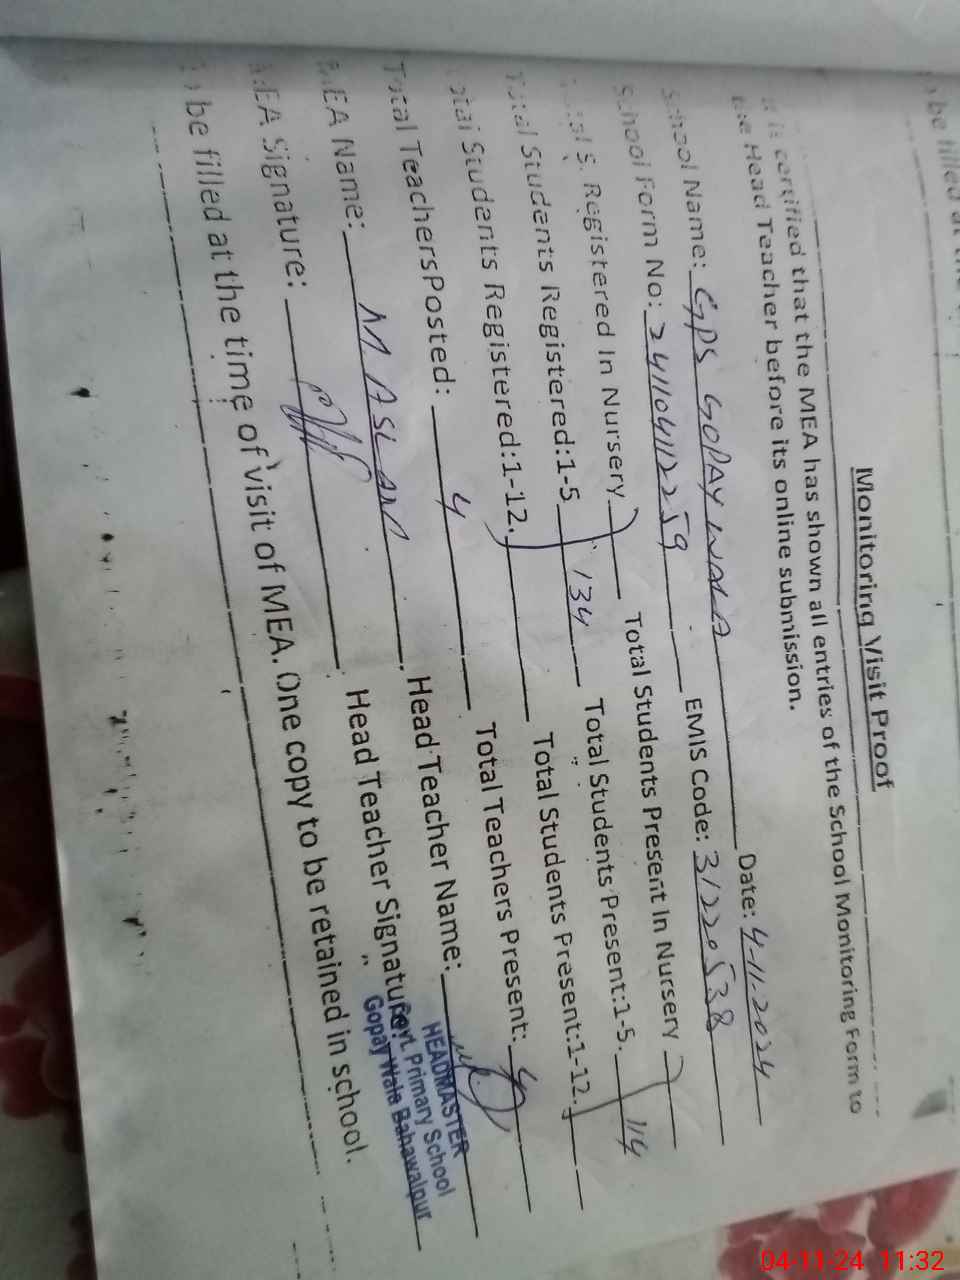 Monitoring Visit Proof
It is certified that the MEA has shown all entries of the School Monitoring Form to
the Head Teacher before its online submission.
School Name: GPS GOPAY WALA Date: 4-11-2024
School Form No: 241104112259 EMIS Code: 31220538
Total S. Registered In Nursery Total Students Present In Nursery
Total Students Registered:1-5 134 Total Students Present:1-5. 114
Total Students Registered:1-12. Total Students Present:1-12.
Total TeachersPosted: 4 Total Teachers Present: 4
MEA Name: M ASLAM Head Teacher Name:
MEA Signature: Head Teacher Signature:
HEADMASTER
Govt. Primary School
Gopay Wala Bahawalpur
To be filled at the time of visit of MEA. One copy to be retained in school.
04-11-24 11:32